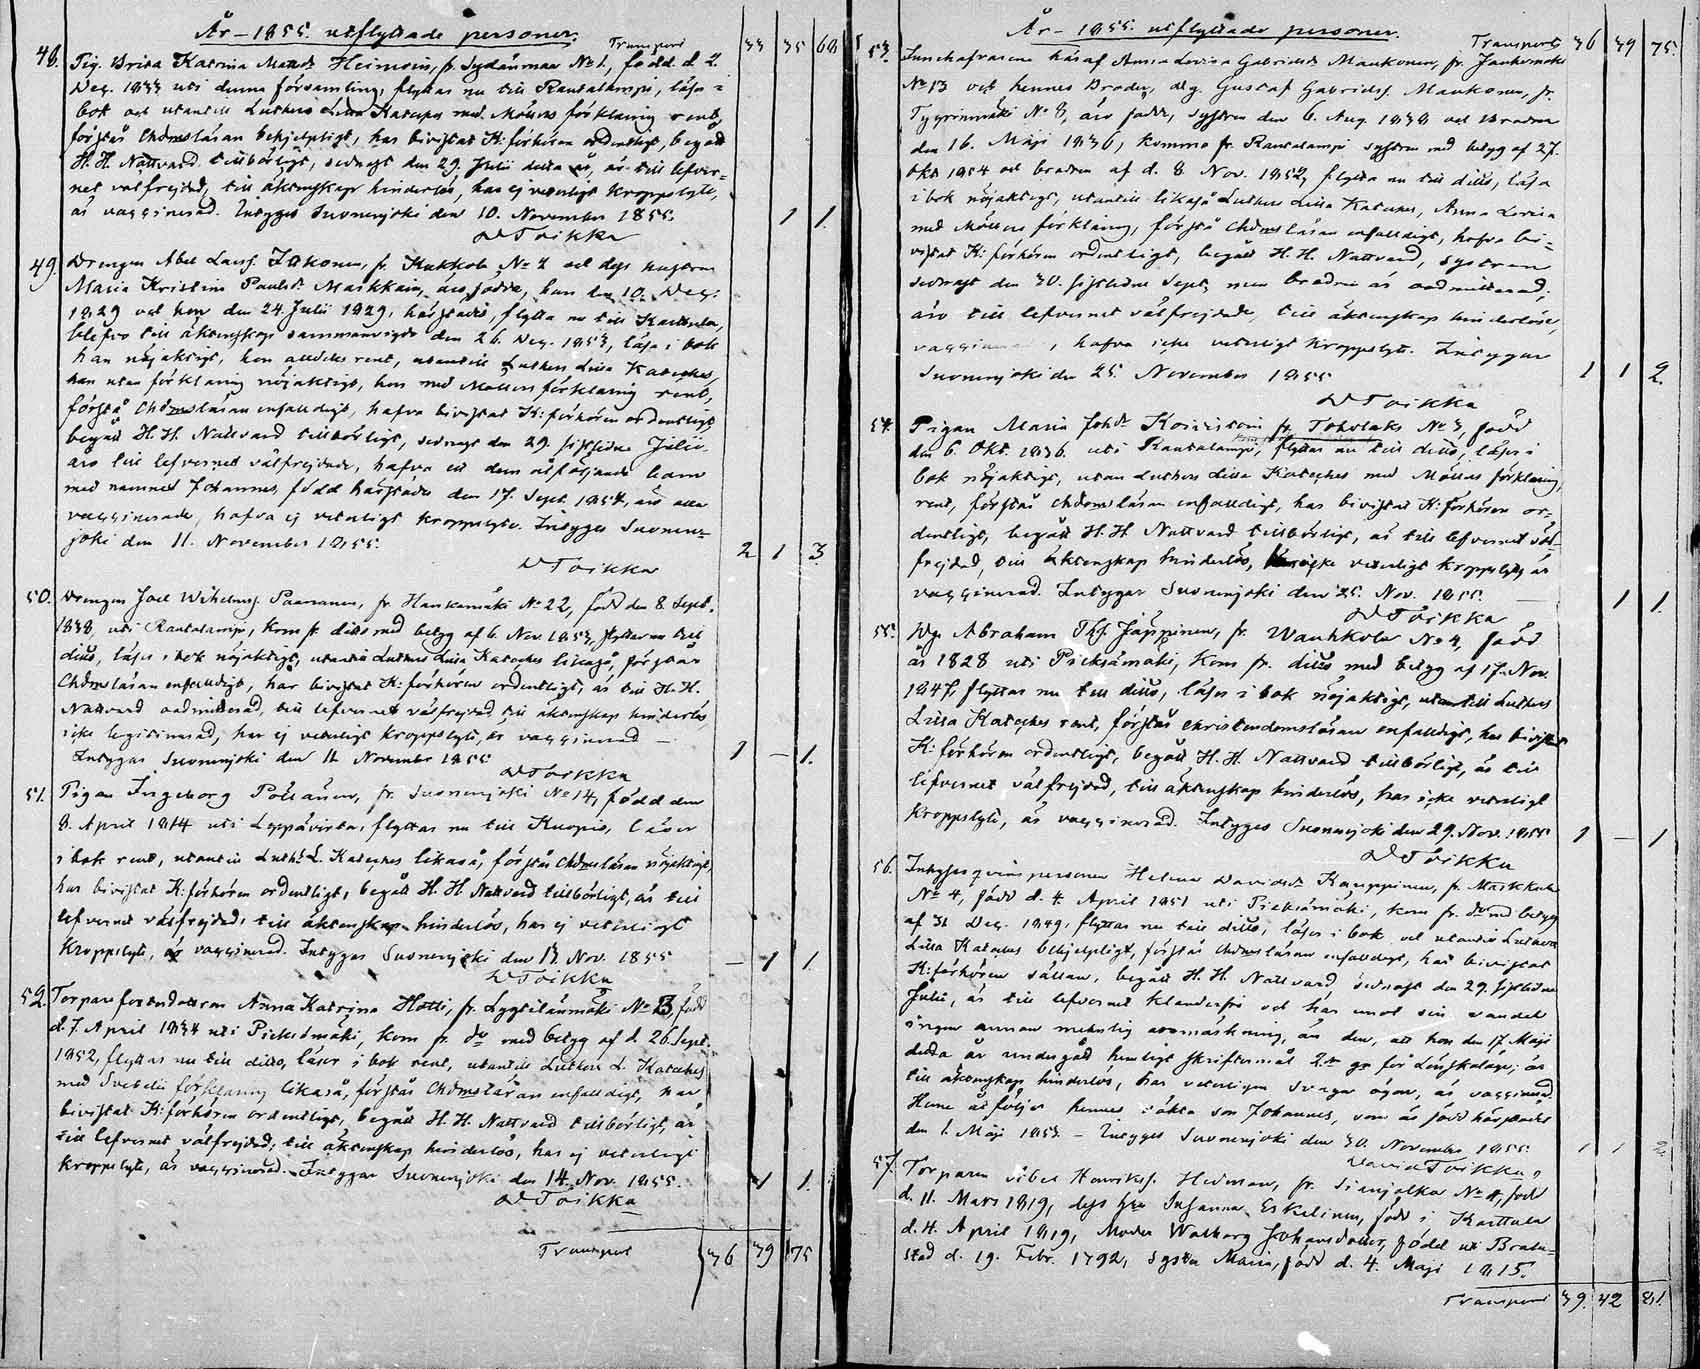 År - 1855. utflyttade personer.
Transport 33 35 68
48. Pig. Brita Katrina Matts dr Heinoin, fr. Sydänmaa No 1, född d. 2.
Dec. 1833 uti denna församling, flyttar nu till Rautalampi, läser i
bok och utantill Luthers Lilla Kateches med Möllers förklaring rent,
förstår Chdmsläran behjelpligt, har bivistat K: förhören ordentligt, begått
H. H. Nattvard tillbörligt, sednast den 29. Julii detta år, är till lefver-
net välfrejdad, till äktenskap hinderlös, har ej veterligt kroppslyte,
är vaccinerad. Intygas Suonenjoki den 10. November 1855. 1 1.
D Toikka
49. Drengen Abel Larss. Jakonen, fr. Kukkola No 2 och dess hustru
Maria Kristina Paulsdr. Markkain, äro födde, han den 10. Dec.
1829 och hon den 24. Julii 1829, härstädes, flytta nu till Karttula,
blefvo till äktenskap sammanvigde den 26. Dec. 1853, läsa i bok
han nöjaktigt, hon alldeles rent, utantill Luthers Lilla Kateches,
han utan förklaring nöjaktigt, hon med Möllers förklaring rent,
förstå Chdmsläran enfaldigt, hafva bivistat K: förhören ordentligt,
begått H. H. Nattvard tillbörligt, sednast den 29. sistledne Julii,
äro till lefvernet välfrejdade, hafva ett dem åtföljande barn
med namnet Johannes, född härstädes den 17. Sept. 1854, äro alla
vaccinerade, hafva ej veterligt kroppslyte. Intygas Suonen-
joki den 11. November 1855. 2 1 3
D Toikka
50. Drengen Joel Wilhelmss. Paananen, fr. Hankamäki No 22, född den 8 Sept.
1838, uti Rautalampi, kom fr. ditto med betyg af 6. Nov. 1853, flyttar nu till
ditto, läser i bok nöjaktigt, utantill Luthers Lilla Kateches likaså, förstår
Chdmsläran enfaldigt, har bivistat K: förhören ordentligt, är till H. H.
Nattvard oadmitterad, till lefvernet välfrejdad, till äktenskap hinderlös,
icke legitimerad, har ej veterligt kroppslyte, är vaccinerad
Intygar Suonenjoki den 11 November 1855 1 — 1.
D Toikka
51. Pigan Ingeborg Pöllänen, fr. Suonenjoki No 14, född den
8. April 1814 uti Leppävirta, flyttar nu till Kuopio, läser
i bok rent, utantill Luth: L. Kateches likaså, förstår Chdmsläran nöjaktigt,
har bivistat K: förhören ordentligt, begått H. H. Nattvard tillbörligt, är till
lefvernet välfrejdad, till äktenskap hinderlös, har ej veterligt
kroppslyte, är vaccinerad. Intygas Suonenjoki den 13. Nov. 1855 — 1 1.
D Toikka
52. Torpareförendottren Anna Katrina Hotti, fr. Lyytilänmäki No 13, född
d. 7. April 1834 uti Pieksämäki, kom fr. do med betyg af d. 26. Sept.
1852, flyttar nu till ditto, läser i bok rent, utantill Luthers L. Kateches
med Svebelii förklaring likaså, förstår Chdmsläran enfaldigt, har
bivistat K: förhören ordentligt, begått H. H. Nattvard tillbörligt, är
till lefvernet välfrejdad, till äktenskap hinderlös, har ej veterligt
kroppslyte, är vaccinerad. Intygar Suonenjoki den 14. Nov. 1855. 1 1.
D Toikka
Transport 36 39 75
År - 1855. utflyttade personer.
Transport 36 39 75.
53. Inneh. Anna Lovisa Gabrielsdr Maukonen, fr.
No 13 och hennes Broder, drg. Gustaf Gabrielss. Maukonen, fr.
Tyyrinmäki No 8, äro födde, systren den 6. Aug. 1838 och brodren
den 16. Maji 1836, komma fr. Rautalampi systren med betyg af 27.
Okt. 1854 och brodren af d. 8. Nov. 1852, flytta nu till ditto, läsa
i bok nöjaktigt, utantill likaså Luthers Lilla Kateches, Anna Lovisa
med Möllers förklaring, förstå Chdmsläran enfaldigt, hafva bi-
vistat K: förhören ordentligt, begått H. H. Nattvard, systren
sednast den 30. sistledne Sept., men brodren är oadmitterad,
äro till lefvernet välfrejdade, till äktenskap hinderlöse,
, hafva icke veterligt kroppslyte. Intygar
Suonenjoki den 25. November 1855 1 1 2.
D Toikka
54. Pigan Maria Johdr. Koivistoin fr. Toholaks No 3, född
den 6. Okt. 1836. uti Rautalampi, flyttar nu till ditto, läser i
bok nöjaktigt, utan Luthers Lilla Kateches med Möllers förklaring,
rent, förstår Chdmsläran enfaldigt, har bivistat K: förhören or-
dentligt, begått H. H. Nattvard tillbörligt, är till lefvernet väl-
frejdad, till äktenskap hinderlös, icke veterligt kroppslyte, är
vaccinerad. Intygar Suonenjoki den 25. Nov. 1855. 1 1.
D Toikka
55. Drg. Abraham Jäppinen, fr. Wauhkola No 4, född
år 1828 uti Pieksämäki, kom fr. ditto med betyg af 17. Nov.
1847, flyttar nu till ditto, läser i bok nöjaktigt, utantill Luthers
Lilla Kateches rent, förstår christendomsläran enfaldigt, har bivistat
K: förhören ordentligt, begått H. H. Nattvard tillbörligt, är till
lefvernet välfrejdad, till äktenskap hinderlös, har icke veterligt
kroppslyte, är vaccinerad. Intygas Suonenjoki den 29. Nov. 1855 1 — 1
D Toikka
56. Inhyses qvinspersonen Helena Davidsdr Kauppinen, fr. Markkala
No 4, född d. 4. April 1851 uti Pieksämäki, kom fr. do med betyg
af 31 Dec. 1849, flyttar nu till ditto, läser i bok och utantill Luthers
Lilla Kateches behjelpligt, förstår Chdmsläran enfaldigt, har bivistat
K: förhören sällan, begått H. H. Nattvard, sednast den 29. sistledne
Julii, är till lefvernet klanderfri och har emot sin vandel
ingen annan anmärkning, än den, att hon den 17. Maji
detta år undergått hemligt skriftermål 2:a gr för Lönskaläge; är
till äktenskap hinderlös, har veterligen svaga ögon, är vaccinerad.
Henne åtföljer hennes oäkta son Johannes, som är född härstädes
den 1. Maji 1853. - Intygas Suonenjoki den 30. November 1855. 1 1 2.
David Toikka
57. Torparen Abel Henrikss. Hedman, fr. Sianjalka No 4, född
d. 11. Mars 1819, dess h:u Susanna Eskelinen, född i Karttula
d. 4. April 1819, Moder Walborg Johansdotter, född uti Brahe-
stad d. 19. Febr. 1792, syster Maria, född d. 4. Maji 1815.
Transport 39. 42 81.